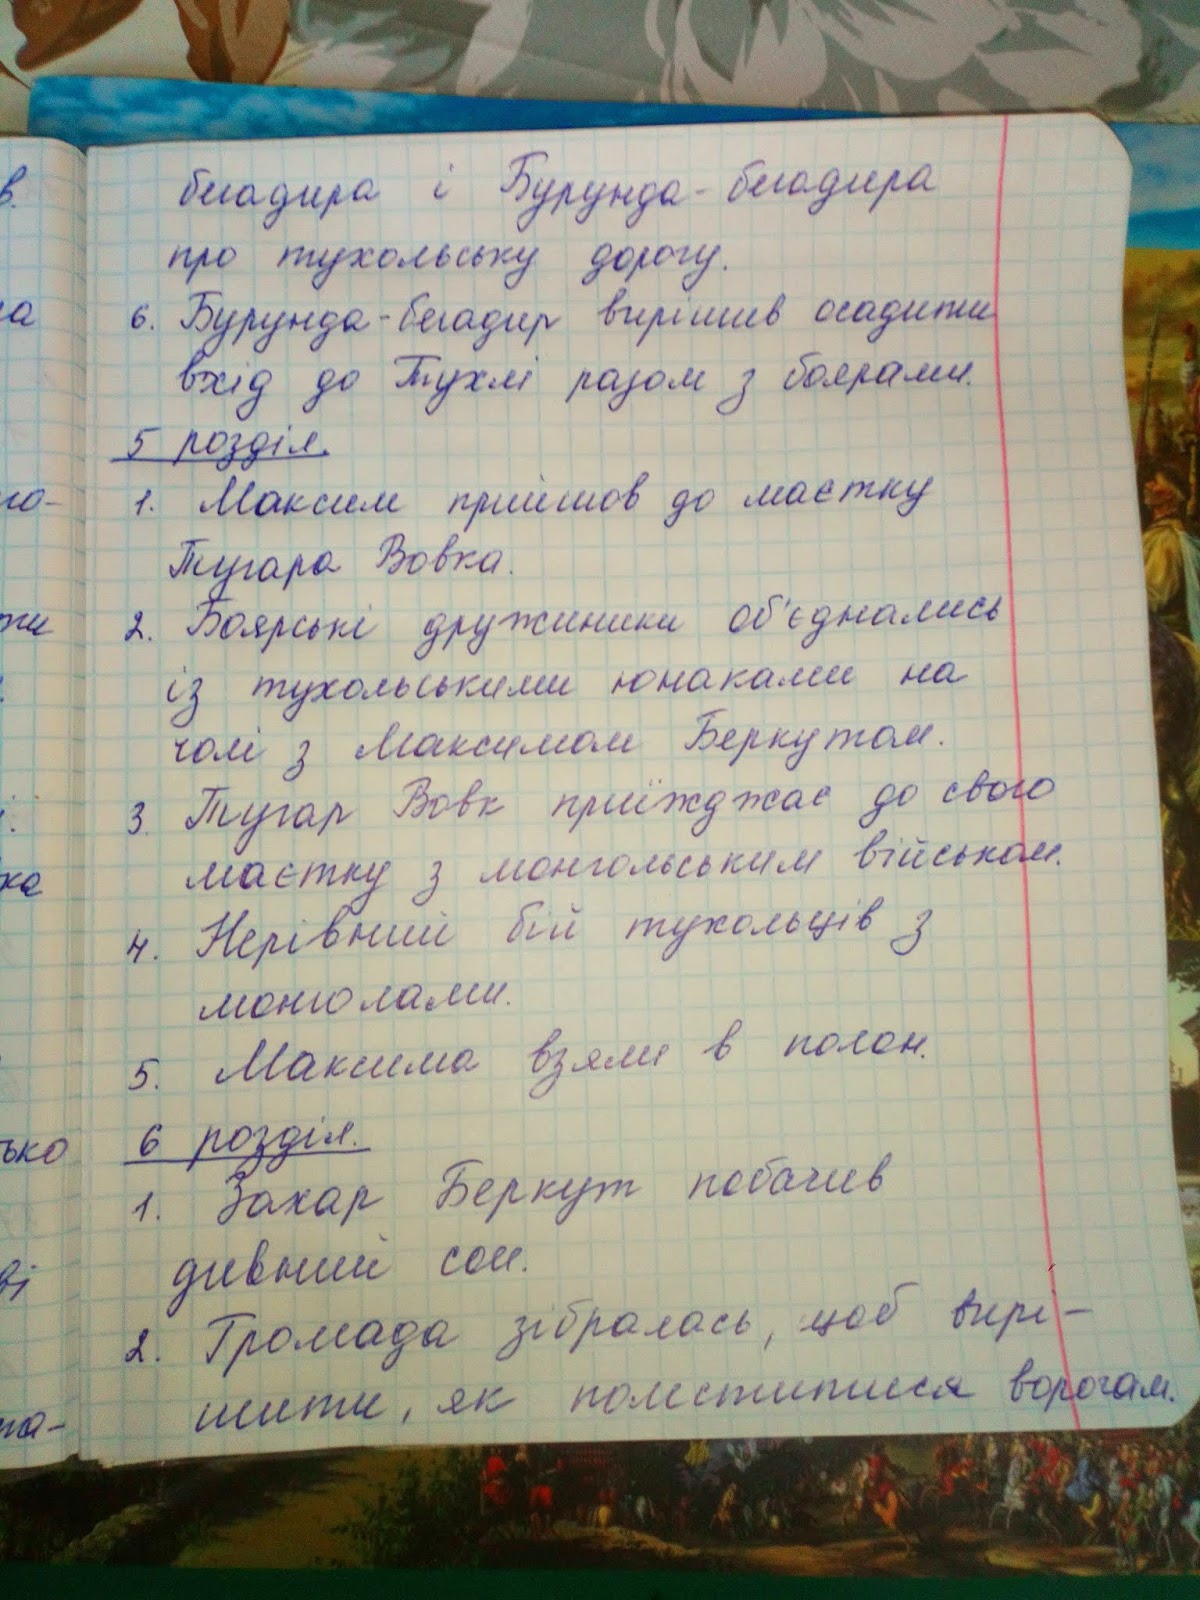 бегадира і Бурунда-бегадира
про тухольську дорогу.
6. Бурунда-бегадир вирішив осадити
вхід до Тухлі разом з боярами.
5 розділ.
1. Максим прийшов до маєтку
Тугара Вовка.
2. Боярські дружинники об'єднались
із тухольськими юнаками на
чолі з Максимом Беркутом.
3. Тугар Вовк приїжджає до свого
маєтку з монгольським військом.
4. Нерівний бій тухольців з
монголами.
5. Максима взяли в полон.
6 розділ.
1. Захар Беркут побачив
дивний сон.
2. Громада зібралась, щоб вирі-
шити, як помститися ворогам.
в.
га
го-
ти
ка
ько
ві
та-